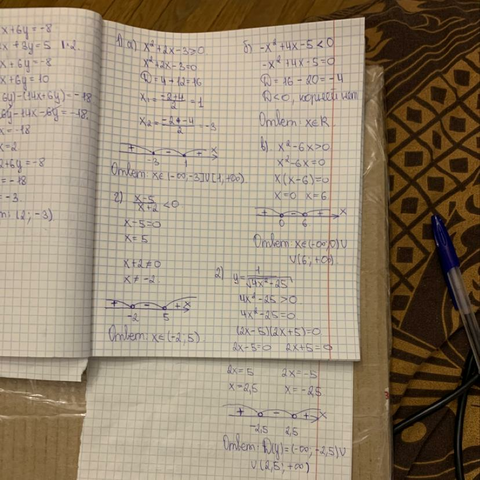 x+6y=-8
x+3y=5 |·2
x+6y=-8
x+6y=10
6y)-(14x+6y)=-18
6y-14x-6y=-18
x=-18
x=2
2+6y=-8
=-18
=-3
(2; -3)
1) a) x²+2x-3>0
x²+2x-3=0
D=4-12=16
x₁=(-2+4)/2=1
x₂=(-2-4)/2=-3
+ - + x
-3 1
Ответ: x∈(-∞,-3)∪(1,+∞)
г) (x-5)/(x+2)<0
x-5=0
x=5
x+2≠0
x≠-2
+ - + x
-2 5
Ответ: x∈(-2; 5)
б) -x²+4x-5<0
-x²+4x-5=0
D=16-20=-4
D<0, корней нет
Ответ: x∈R
в) x²-6x>0
x²-6x=0
x(x-6)=0
x=0 x=6
+ - + x
0 6
Ответ: x∈(-∞,0)∪
∪(6; +∞)
2) y=1/√(4x²-25)
4x²-25>0
4x²-25=0
(2x-5)(2x+5)=0
2x-5=0 2x+5=0
2x=5 2x=-5
x=2,5 x=-2,5
+ - + x
-2,5 2,5
Ответ: D(y)=(-∞; -2,5)∪
∪(2,5; +∞)